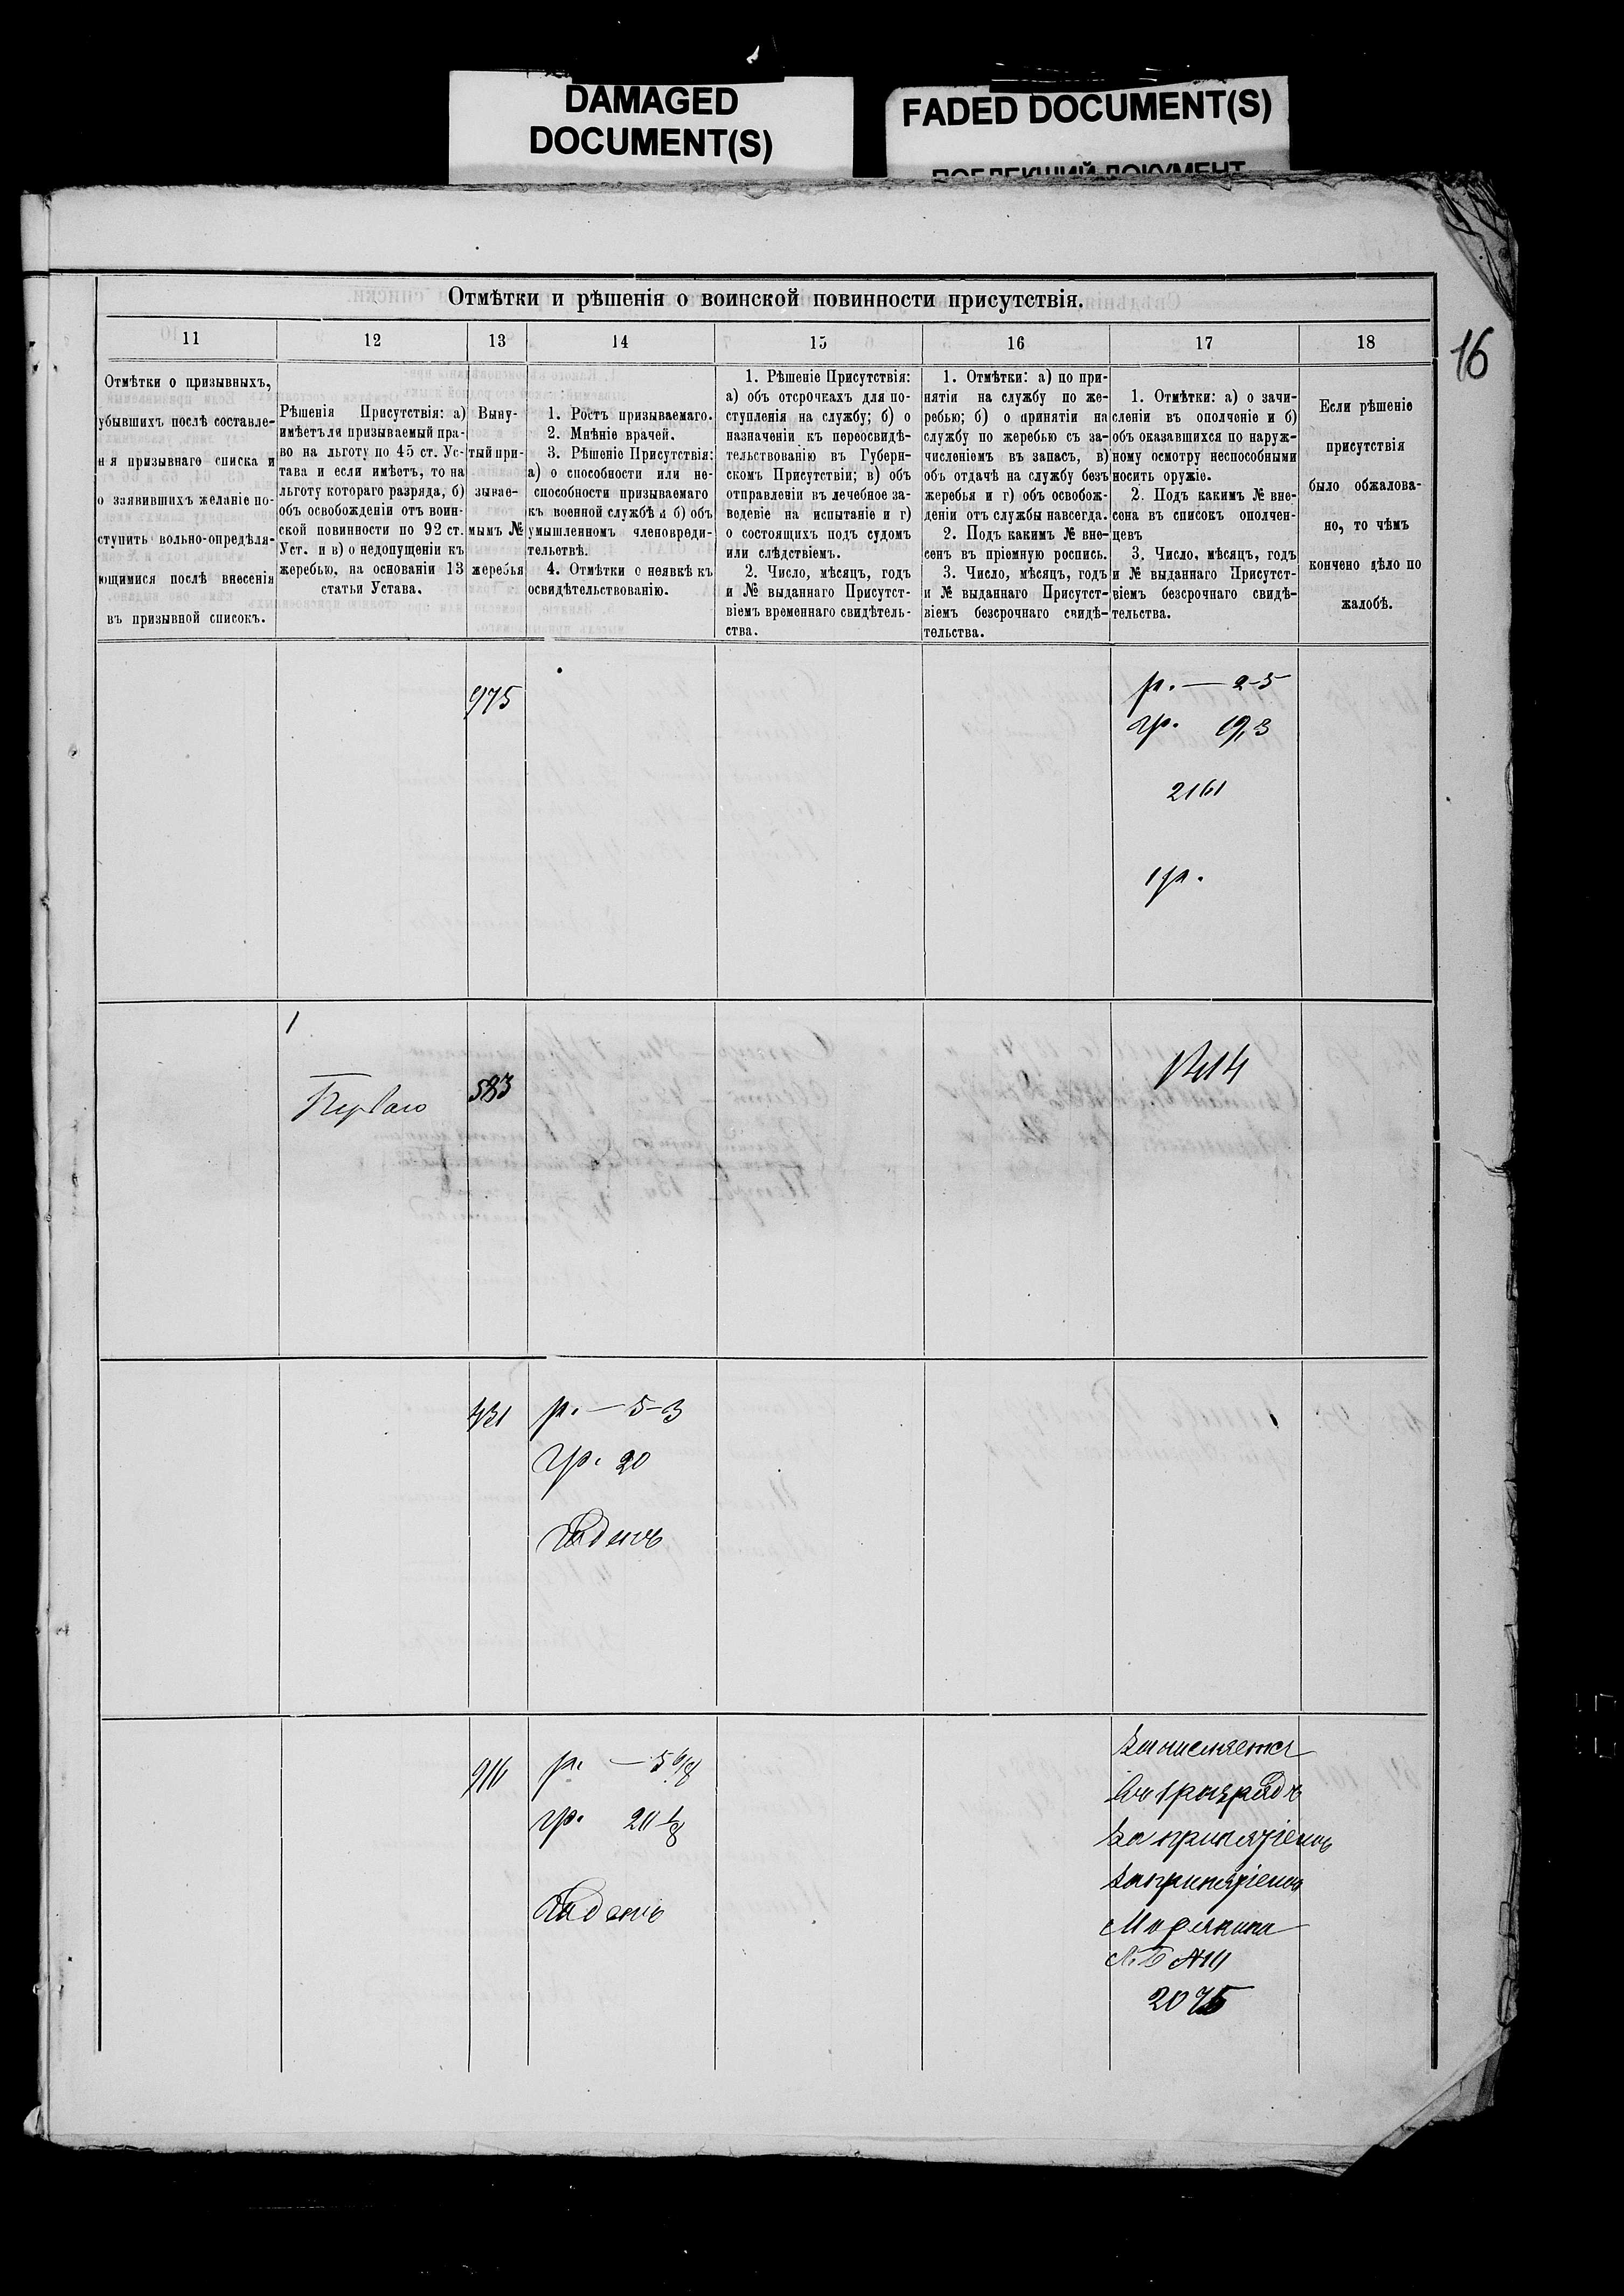 DAMAGED
DOCUMENT(S)
FADED DOCUMENT(S)
ПОБЛЕКШИЙ ДОКУМЕНТ
16
Отмѣтки и рѣшенія о воинской повинности присутствія.
11
12
13
14
15
16
17
18
Отмѣтки о призывныхъ,
убывшихъ послѣ составле-
нія призывнаго списка и
о заявившихъ желаніе по-
ступить вольно-опредѣля-
ющимися послѣ внесенія
въ призывной списокъ.
Рѣшенія Присутствія: а)
имѣетъ ли призываемый пра-
во на льготу по 45 ст. Ус-
тава и если имѣетъ, то на
льготу котораго разряда, б)
объ освобожденіи отъ воин-
ской повинности по 92 ст.
Уст. и в) о недопущеніи къ
жеребью, на основаніи 13
статьи Устава.
Выну-
тый при-
зывае-
мымъ №
жеребья
1. Ростъ призываемаго.
2. Мнѣніе врачей.
3. Рѣшеніе Присутствія:
а) о способности или не-
способности призываемаго
къ военной службѣ и б) объ
умышленномъ членовреди-
тельствѣ.
4. Отмѣтки о неявкѣ къ
освидѣтельствованію.
1. Рѣшеніе Присутствія:
а) объ отсрочкахъ для по-
ступленія на службу; б) о
назначеніи къ переосвидѣ-
тельствованію въ Губерн-
скомъ Присутствіи; в) объ
отправленіи въ лечебное за-
веденіе на испытаніе и г)
о состоящихъ подъ судомъ
или слѣдствіемъ.
2. Число, мѣсяцъ, годъ
и № выданнаго Присутст-
віемъ временнаго свидѣтель-
ства.
1. Отмѣтки: а) по при-
нятіи на службу по же-
ребью; б) о принятіи на
службу по жеребью съ за-
численіемъ въ запасъ, в)
объ отдачѣ на службу безъ
жеребья и г) объ освобож-
деніи отъ службы навсегда.
2. Подъ какимъ № вне-
сенъ въ пріемную роспись.
3. Число, мѣсяцъ, годъ
и № выданнаго Присутст-
віемъ безсрочнаго свидѣ-
тельства.
1. Отмѣтки: а) о зачи-
сленіи въ ополченіе и б)
объ оказавшихся по наруж-
ному осмотру неспособными
носить оружіе.
2. Подъ какимъ № вне-
сена въ списокъ ополчен-
цевъ
3. Число, мѣсяцъ, годъ
и № выданнаго Присутст-
віемъ безсрочнаго свидѣ-
тельства.
Если рѣшеніе
присутствія
было обжалова-
но, то чѣмъ
кончено дѣло по
жалобѣ.
975
р. — 2-5
гр. 19,3
2161
1 р.
1
Перваго
583
431
р. — 5-3
гр. 20
Годенъ
916
р. — 5 6/8
гр. 20 1/8
Годенъ
Зачисляется
въ 1 разрядъ
за принятіемъ
за принятіемъ
2075